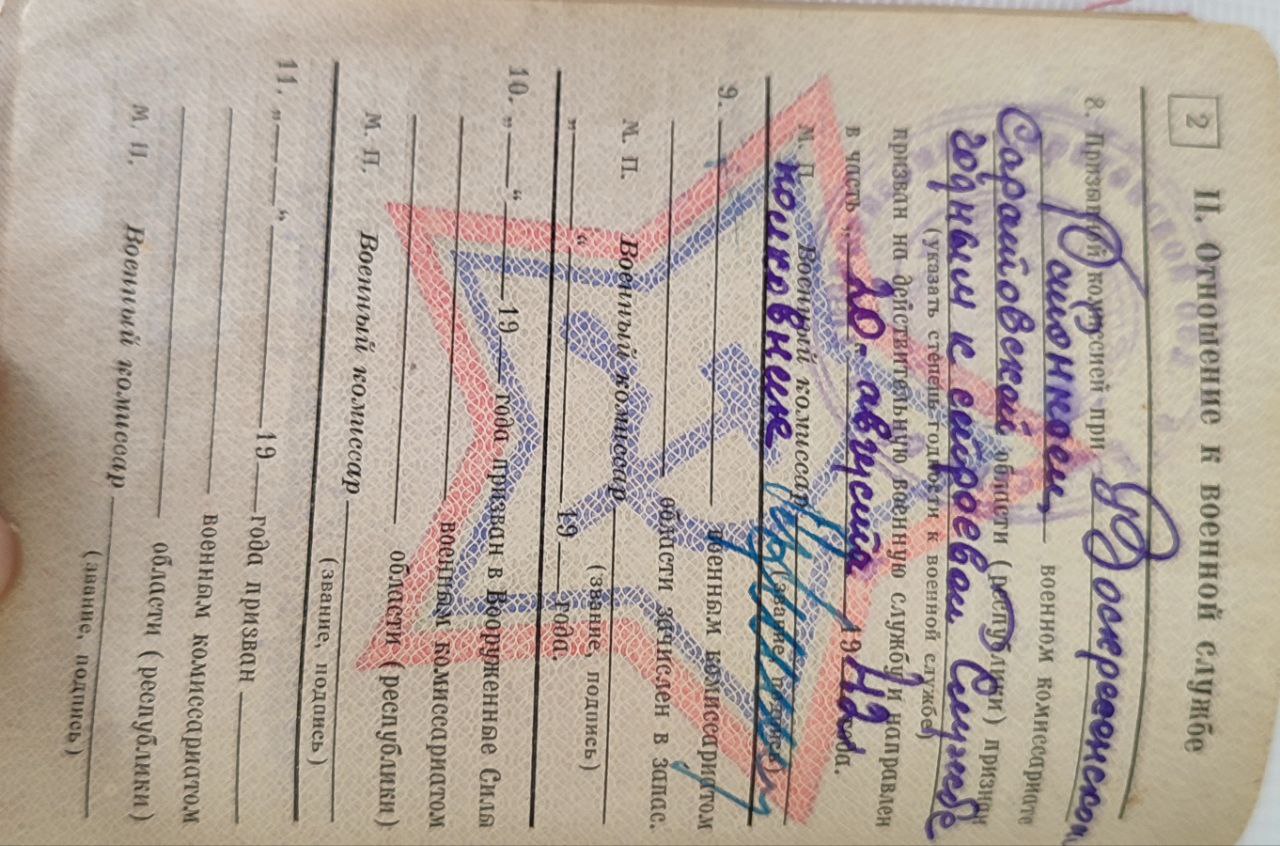 2
II. Отношение к военной службе
8. Призывной комиссией при Воскресенском
Районном военном комиссариате
Саратовской области (республики) признан
годным к строевой службе
(указать степень годности к военной службе)
призван на действительную военную службу и направлен
в часть „20“ августа 1942 года.
М. П. Военный комиссар
полковник
(звание, подпись)
9. военным комиссариатом
области зачислен в запас.
М. П. Военный комиссар
(звание, подпись)
„ “ 19 года.
10. „ “ 19 года призван в Вооруженные Силы
военным комиссариатом
области (республики)
М. П. Военный комиссар
(звание, подпись)
11. „ “ 19 года призван
военным комиссариатом
области (республики)
М. П. Военный комиссар
(звание, подпись)